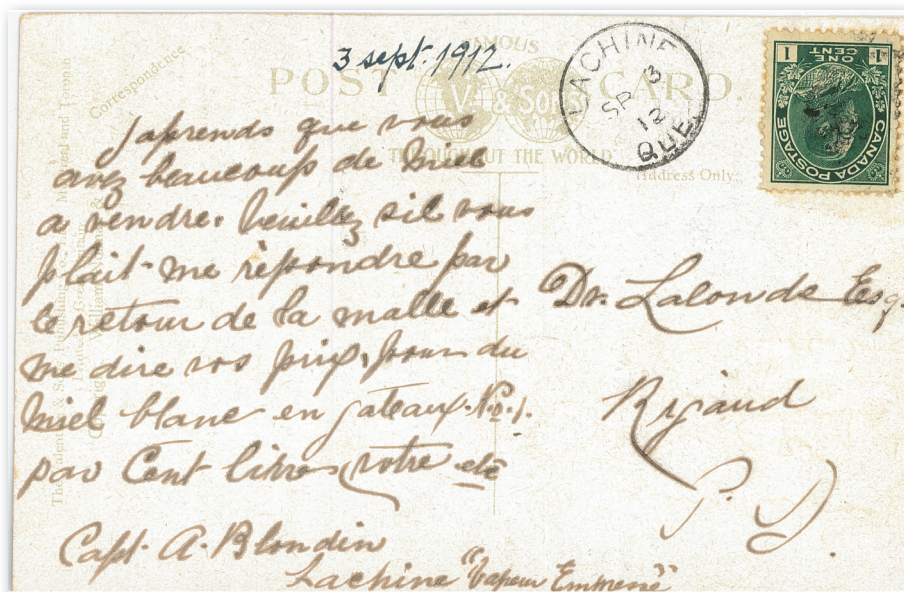 3 sept. 1912.
FAMOUS
POST CARD.
V. & SON
THROUGHOUT THE WORLD
Correspondence
Address Only
LACHINE
SP 3
12
QUE.
CANADA POSTAGE
ONE CENT
1 1
J'aprends que vous
avez beaucoup de Miel
a vendre. Veuillez sil vous
plait me rèpondre par
le retour de la malle et
me dire vos prix, pour du
Miel blanc en gateaux. No. 1.
par Cent livres, votre etc
Capt. A. Blondin
Lachine "Vapeur Empress"
Dr. Lalonde Esq.
Rigaud
P. Q.